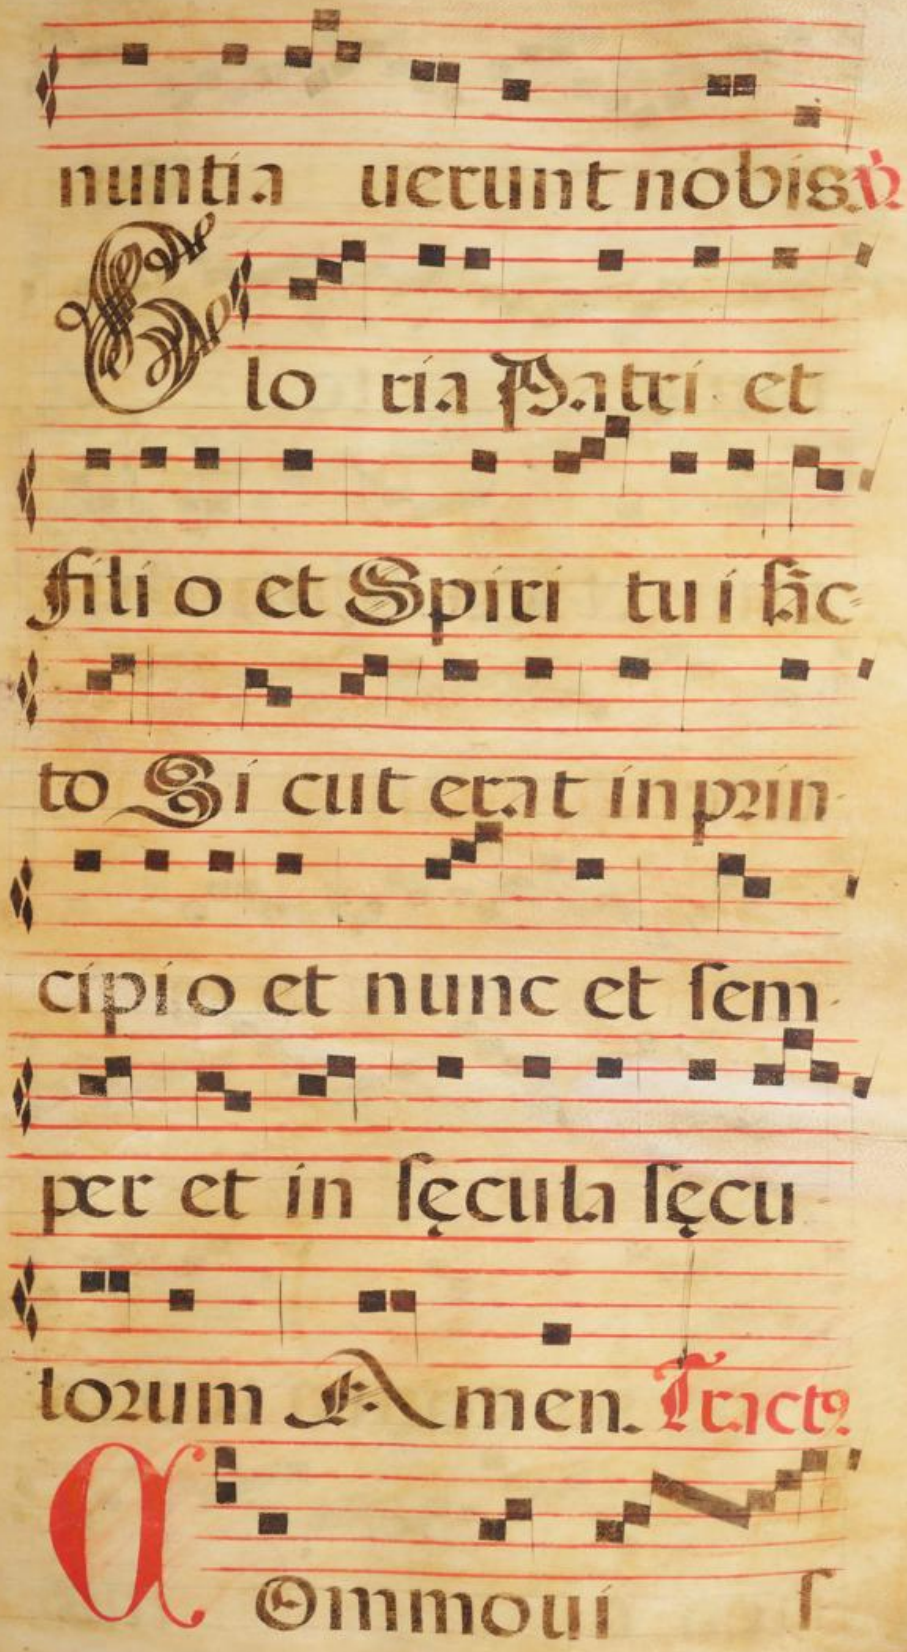 nuntia uerunt nobis. V̇
Glo ria Patri et
fili o et Spiri tu i sãc-
to Si cut erat in prin-
cipi o et nunc et sem-
per et in sęcula sęcu
lorum Amen. Tractꝰ
Commoui s